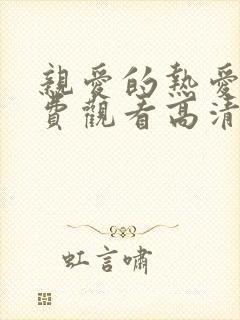 親愛的熱愛
費觀看高清
虹言嘯